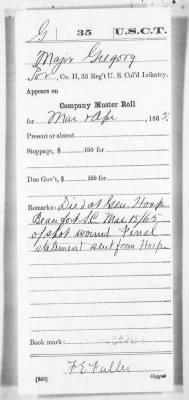 G | 35 | U.S.C.T.
Major Gregory
Co. H, 35 Reg't U. S. Col'd Infantry.
Appears on
Company Muster Roll
for Mar & Apr, 1865.
Present or absent
Stoppage, $ 100 for
Due Gov't, $ 100 for
Remarks: Died at Gen. Hosp
Beaufort S.C. Mar 15/65
of shot wound Final
statement sent from Hosp.
Book mark:
F. E. Fuller
(361) Copyist.